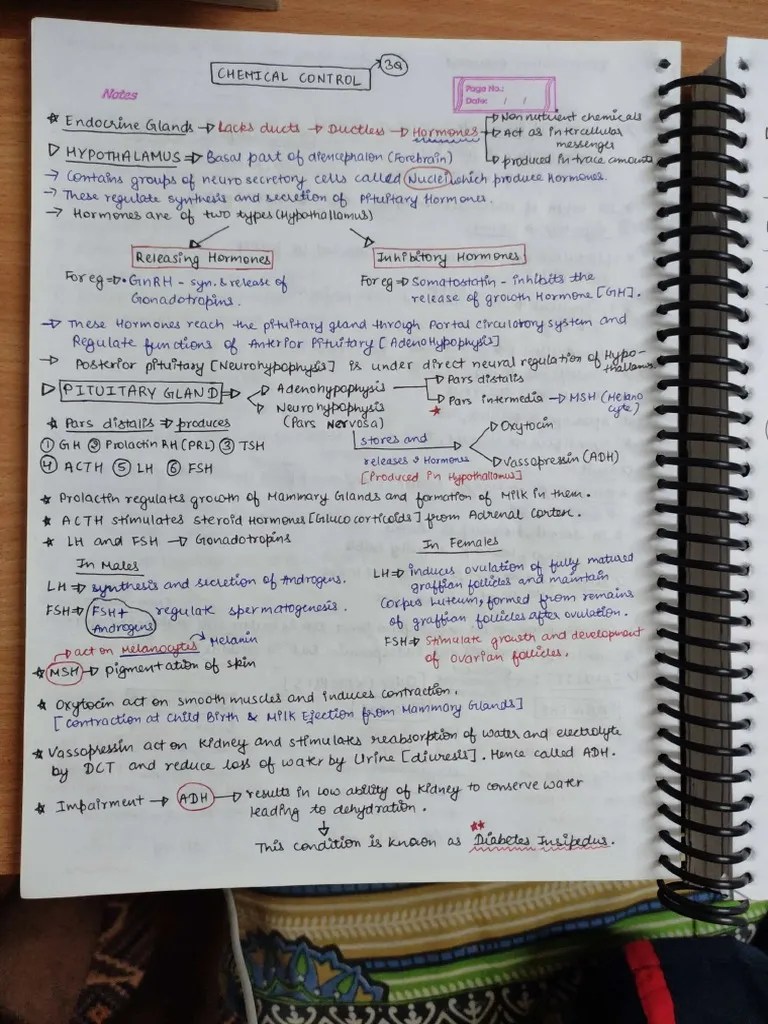 CHEMICAL CONTROL → 3Q
Notes
Page No.:
Date: / /
★ Endocrine Glands → Lacks ducts → Ductless → Hormones → Non nutrient chemicals
→ Act as intercellular messenges
→ produced in trace amounts
▷ HYPOTHALAMUS ⇒ Basal part of diencephalon (Forebrain)
→ Contains groups of neuro secretory cells called Nuclei which produce Hormones.
→ These regulate synthesis and secretion of Pituitary Hormones.
→ Hormones are of two types (Hypothallamus)
Releasing Hormones
Inhibitory Hormones
For eg ⇒ • GnRH - syn. & release of
Gonadotropins.
For eg ⇒ Somatostatin - inhibits the
release of growth Hormone [GH].
→ These Hormones reach the pituitary gland through Portal circulatory system and
Regulate functions of Anterior Pituitary [Adenohypophysis]
→ Posterior pituitary [Neurohypophysis] is under direct neural regulation of Hypo-
thallamus
▷ PITUITARY GLAND ⇒ Adenohypophysis → Pars distalis
→ Pars intermedia → MSH (Melano
cyte)
Neurohypophysis
(Pars Nervosa)
★
★ Pars distalis → produces
① GH ② Prolactin RH (PRL) ③ TSH
④ ACTH ⑤ LH ⑥ FSH
stores and
releases Hormones
[Produced in Hypothallamus]
→ Oxytocin
→ Vassopressin (ADH)
★ Prolactin regulates growth of Mammary Glands and formation of Milk in them.
★ ACTH stimulates steroid Hormones [Glucocorticoids] from Adrenal Cortex.
★ LH and FSH → Gonadotropins
In Males
LH ⇒ synthesis and secretion of Androgens.
FSH ⇒ FSH + Androgens regulate spermatogenesis.
In Females
LH ⇒ induces ovulation of fully matured
graffian follicles and maintain
Corpus Luteum, formed from remains
of graffian follicles after ovulation.
FSH ⇒ Stimulate growth and development
of ovarian follicles.
→ act on Melanocytes → Melanin
★ MSH → Pigmentation of skin
★ Oxytocin act on smooth muscles and induces contraction.
[Contraction at Child Birth & Milk Ejection from Mammary Glands]
★ Vassopressin act on Kidney and stimulats reabsorption of water and electrolyte
by DCT and reduce loss of water by Urine [diuresis]. Hence called ADH.
★ Impairment → ADH → results in low ability of Kidney to conserve water
leading to dehydration.
↓
This condition is known as ★★ Diabetes Insipedus.